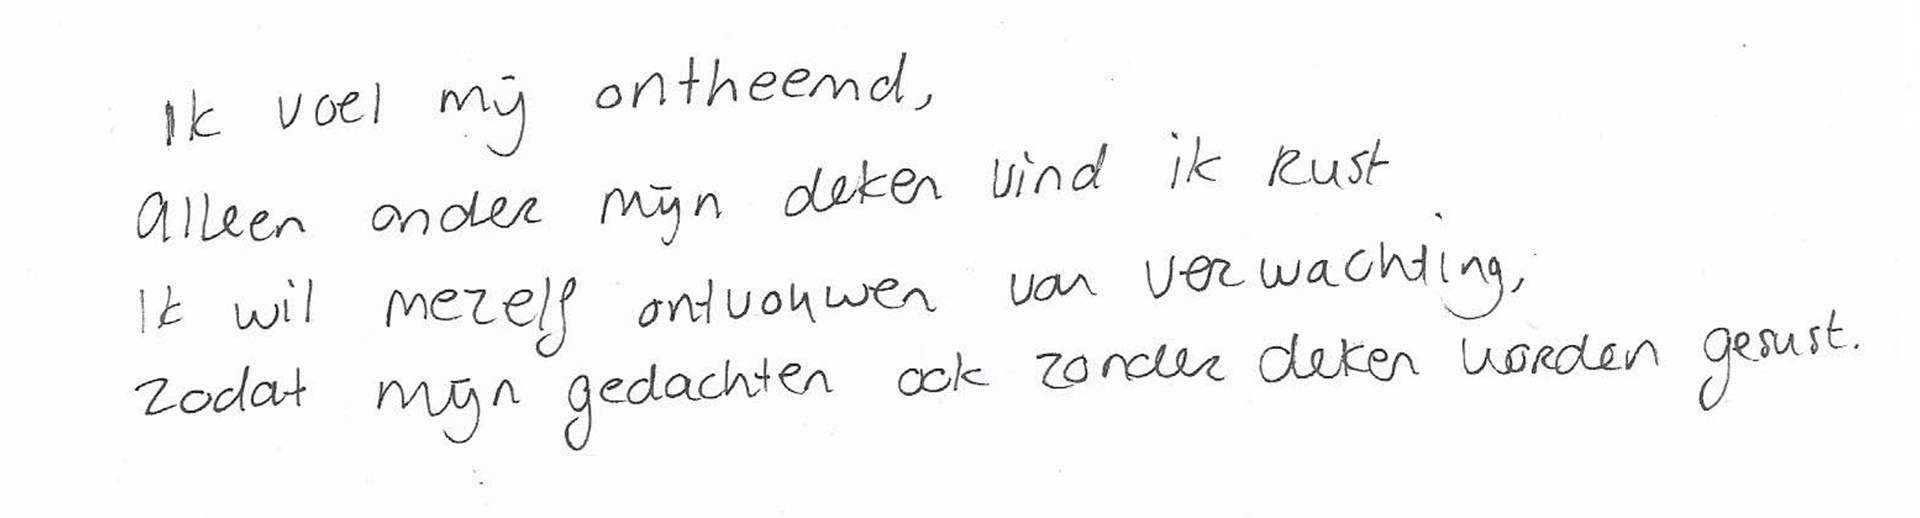 Ik voel mij ontheemd,
Alleen onder mijn deken vind ik rust
Ik wil mezelf ontvouwen van verwachting,
zodat mijn gedachten ook zonder deken worden gesust.